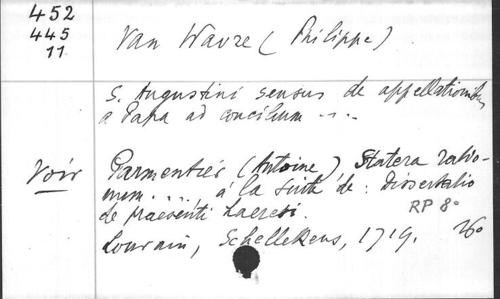 452
445
11
Van Wavre (Philippe)
S. Augustini sensus de appellationibus
a Papa ad concilium ....
Voir Parmentier (Antoine) Statera ratio-
num .... à la suite de : Dissertatio
de praesenti haeresi.
RP 8°
Louvain, Schellekens, 1719.